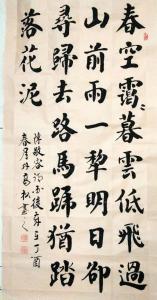 春空靄〻暮雲低飛過
山前雨一犁明日卻
尋歸去路馬蹄猶踏
落花泥
丁酉
春月